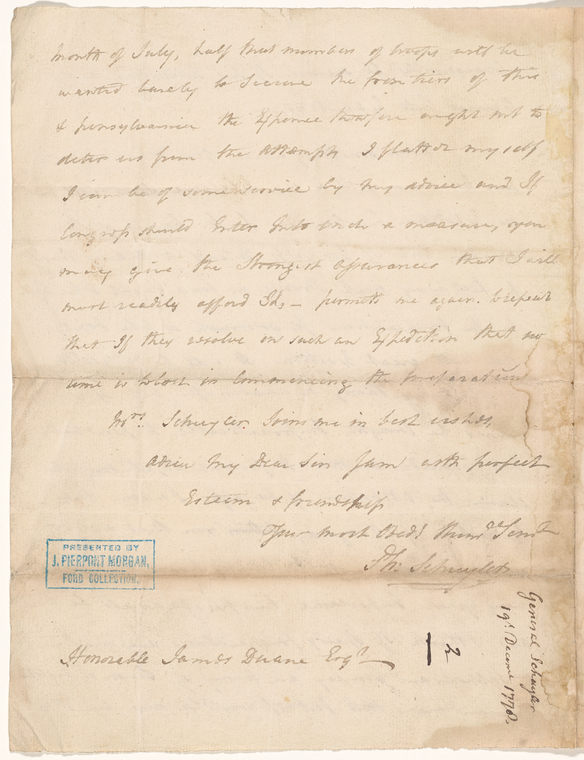 month of July, half that numbers of troops will be
wanted barely to secure the frontiers of this
& pensylvania the Expence therefore ought not to
deter us from the attempt, I flatter my self
I can be of some service by my advice and If
Congress should Enter Into such a measure, you
may give the Strongest assurances that I will
most readily afford Id, — permit me again to repeat
that If they resolve on such an Expedition that no
time is to be lost in Commencing the preparation
Mrs. Schuyler Joins me in best wishes,
adieu My Dear Sir I am with perfect
Esteem & friendship
Your most Obedt Humd Servt
Ph: Schuyler
PRESENTED BY
J. PIERPONT MORGAN,
FORD COLLECTION.
Honorable James Duane Esqr
2
General Schuyler
19th Decemr 1778.